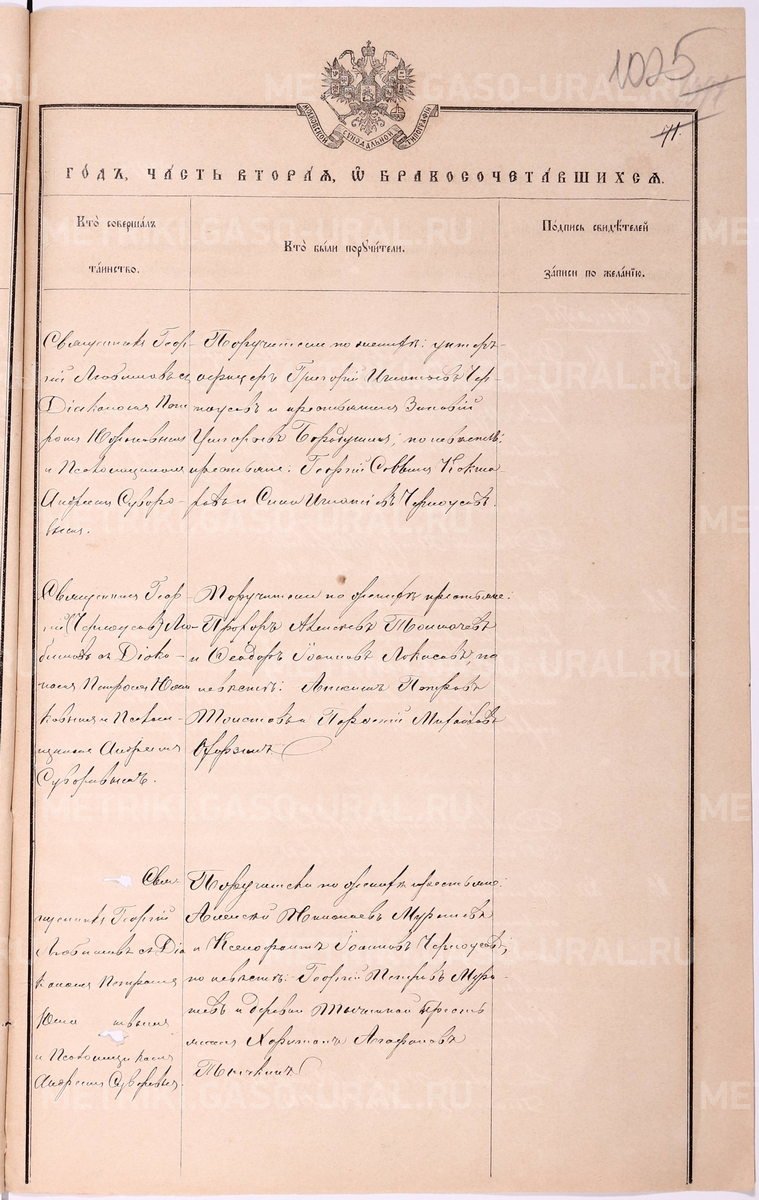 1025
41
МОСКОВСКОЙ СУНОДАЛЬНОЙ ТИПОГРАФІИ
ГОДЪ, ЧАСТЬ ВТОРАЯ, Ѡ БРАКОСОЧЕТАВШИХСЯ.
Кто совершалъ таинство.
Кто были поручители.
Подпись свидѣтелей записи по желанію.
Священникъ Геор-
гій Любимовъ съ
Діакономъ Пет-
ромъ
и Псаломщикомъ
Андреемъ Суворо-
вымъ.
Поручители по женихѣ: унтеръ-
офицеръ Григорій Игнатьевъ Чер-
ноусовъ и крестьянинъ Зиновій
Григорьевъ по невѣстѣ:
крестьяне: Георгій Саввинъ
и Игнатіевъ Черноусовъ.
Священникъ Геор-
гій (Черноусовъ) Лю-
бимовъ съ Діако-
номъ Петромъ
и Псалом-
щикомъ Андреемъ
Суворовымъ.
Поручители по женихѣ крестьяне:
Прохоръ Алексѣевъ Толмачевъ
и Ѳеодоръ Іоанновъ по
невѣстѣ: Петровъ
Толстовъ и Михайловъ
Свя-
щенникъ Георгій
Любимовъ съ Діа
кономъ Петромъ
и Псаломщикомъ
Андреемъ Суворовымъ.
Поручители по женихѣ крестьяне:
Алексѣй Николаевъ
и Ксенофонтъ Іоанновъ Черноусовъ,
по невѣстѣ: Георгій Петровъ
и деревни кресть
янинъ Харитонъ Агафоновъ
METRIKI.GASO-URAL.RU